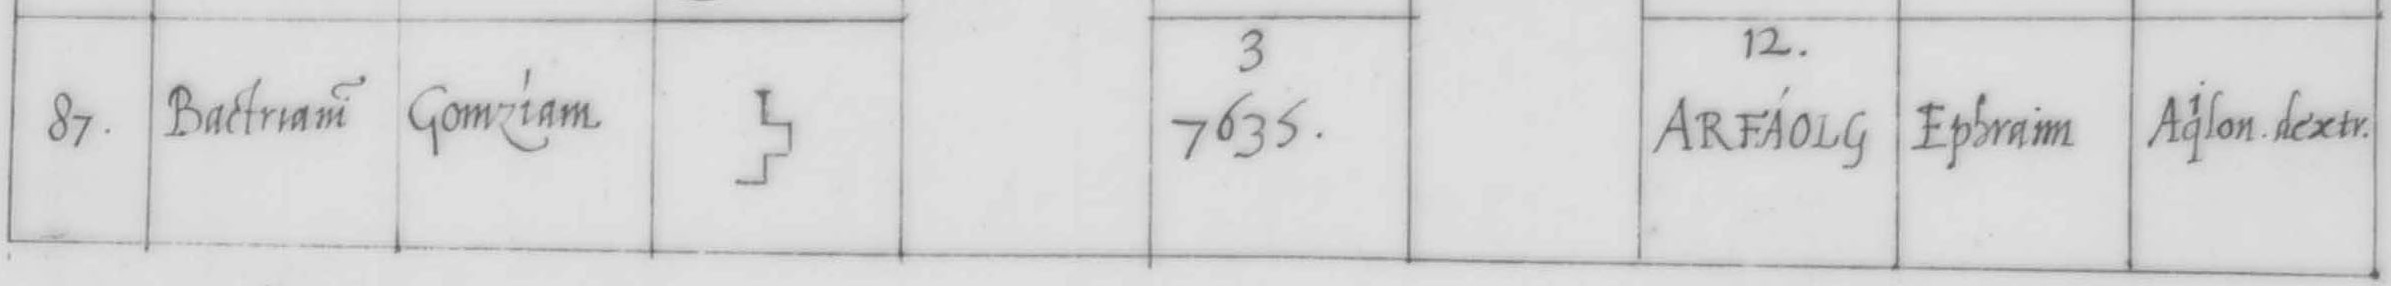 3
12.
87. Bactrianī Gomzíam 7635. ARFÁOLG Ephraim Aqilon. dextr.